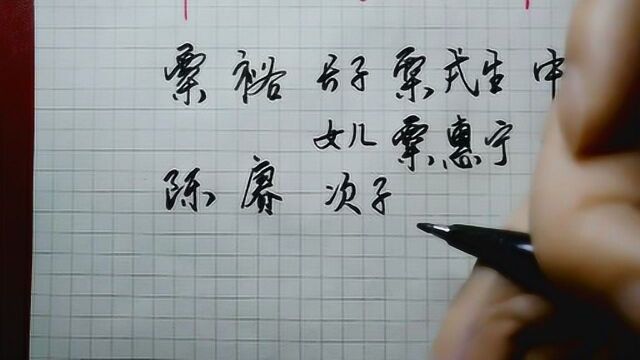 粟裕 长子 粟戎生 中
女儿 粟惠宁
陈赓 次子